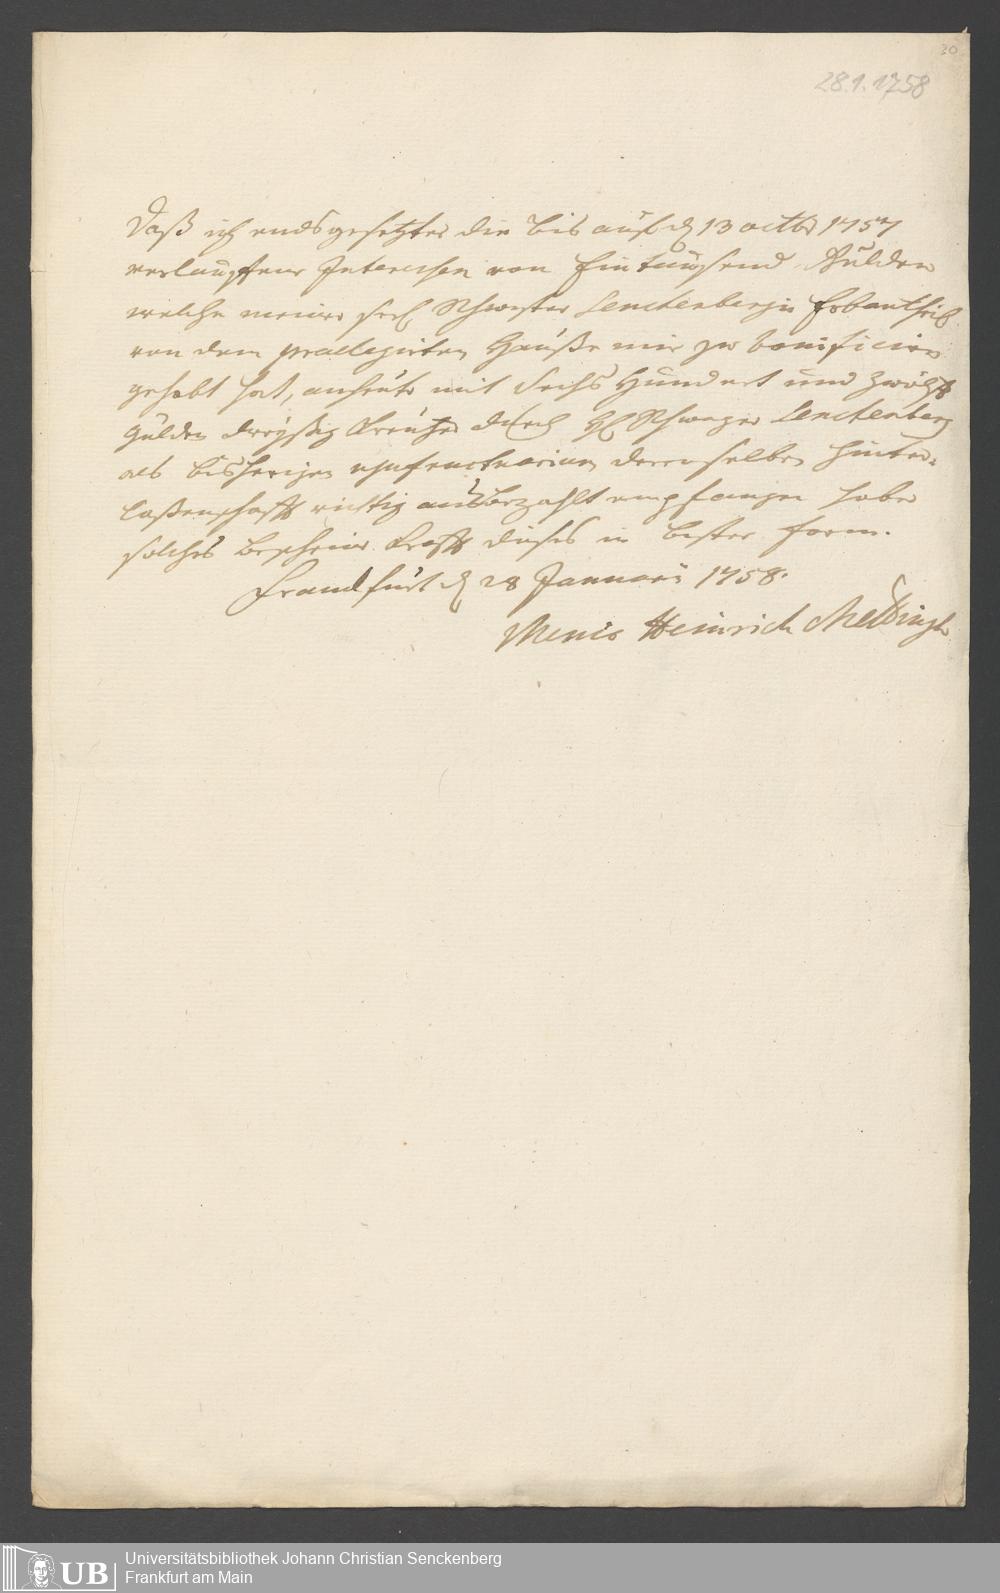 30
28.1.1758
Daß ich endsgesetzter die bis auf d. 13 octb 1757
verlauffene Interessen von Eintausend Gulden
welche meiner seel. Schwester Senckenbergin Erbantheil
von dem praelegirten Hauße mir zu bonificiren
gehabt hat, anheute mit Sechs Hundert und zwölff
Gulden dreyßig Kreutzer durch H. Schwager Senckenberg
als bisherigen usufructuarium deroselben Hinter-
laßenschafft richtig ausbezahlt empfangen habe
solches bescheine Krafft dieses in bester form.
Franckfurt d. 28 Januari 1758.
Heinrich Mettingh
UB
Universitätsbibliothek Johann Christian Senckenberg
Frankfurt am Main